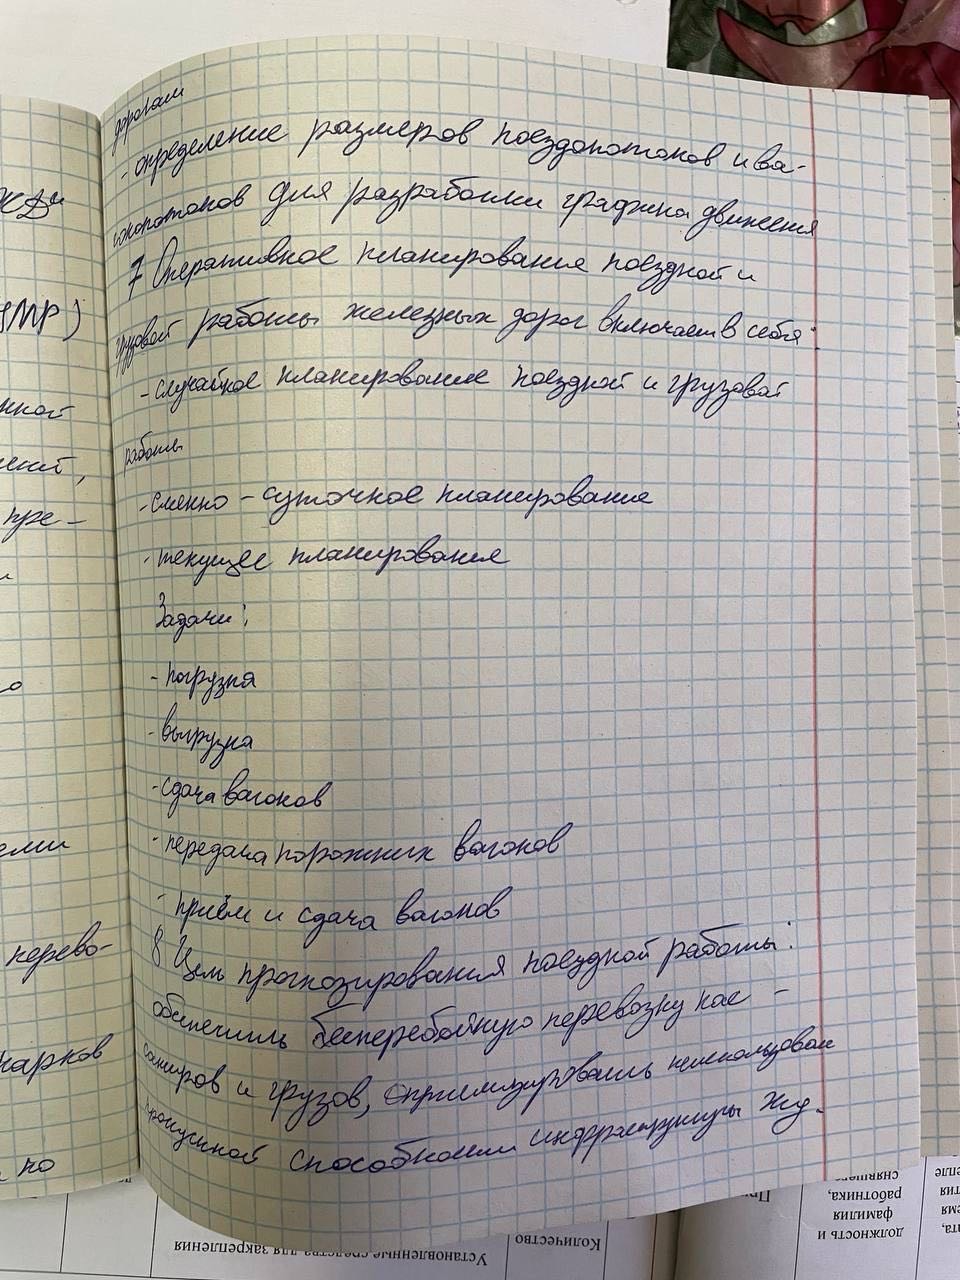 дорогам
- определение размеров поездопотоков и ва-
гонопотоков для разработки графика движения
7 Оперативное планирование поездной и
грузовой работы железных дорог включает в себя:
- случайное планирование поездной и грузовой
работы
- сменно - суточное планирование
- текущее планирование
Задачи:
- погрузка
- выгрузка
- сдача вагонов
- передача порожних вагонов
- приём и сдача вагонов
8 Цель прогнозирования поездной работы:
обеспечить бесперебойную перевозку пас -
сажиров и грузов,
пропускной способности инфраструктуры жд.
ЖД"
УМР)
нной
пре-
еми
перево-
парков
по
Установленные средства для закрепления
Количество
должность и
фамилия
работника,